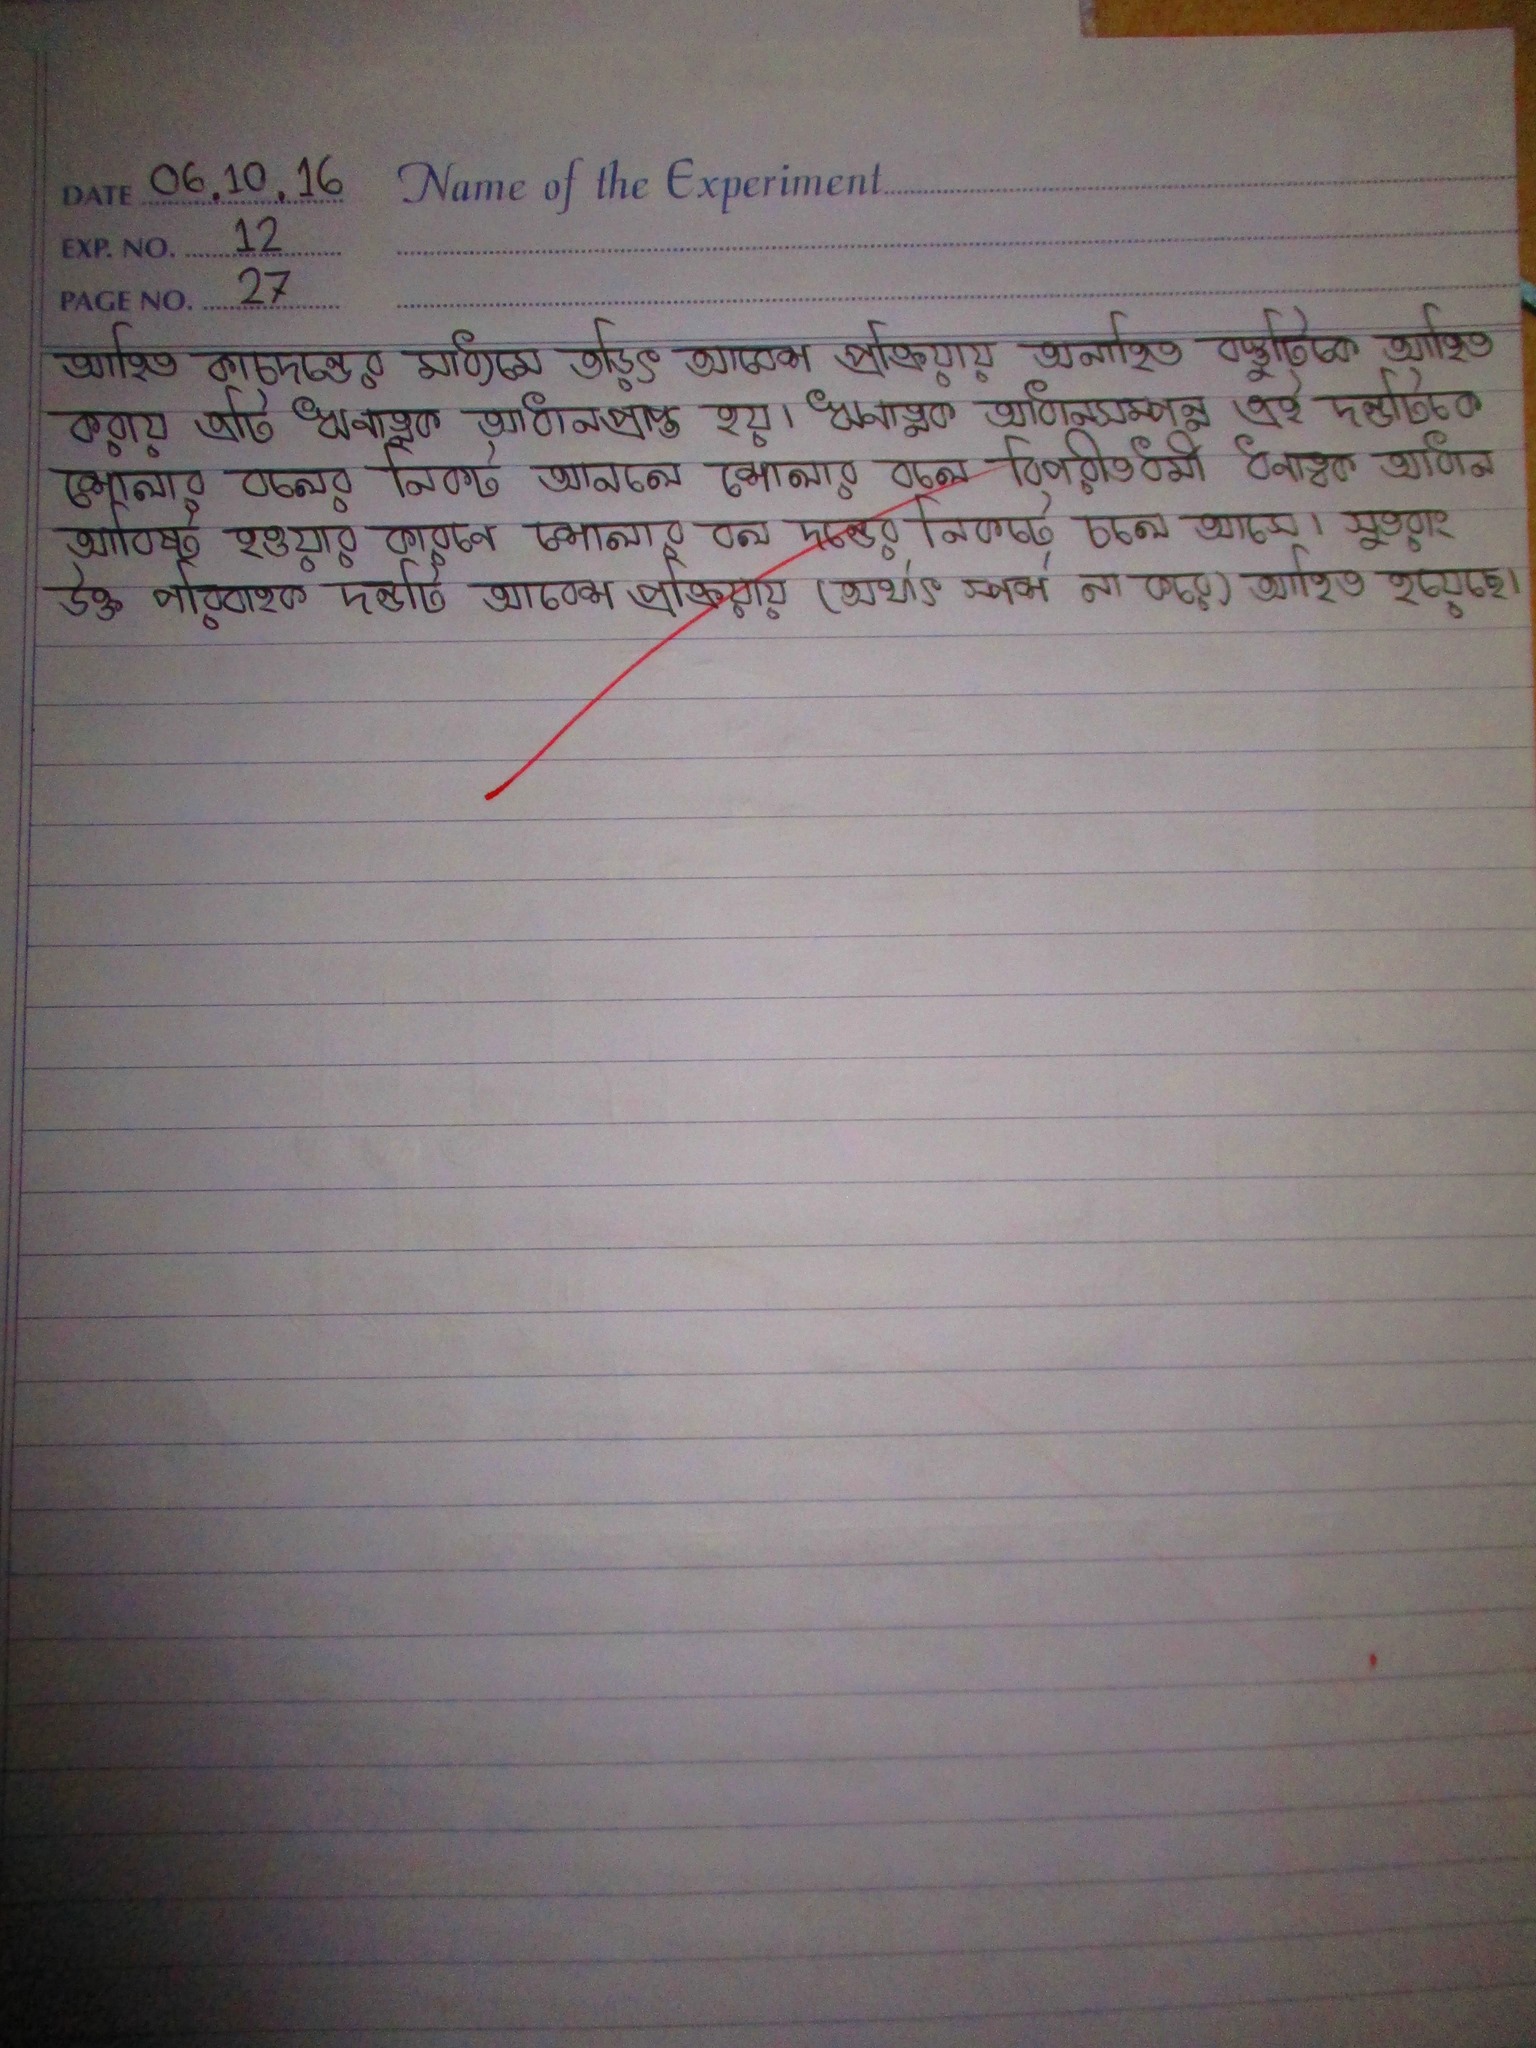 DATE 06.10.16 Name of the Experiment
EXP. NO. 12
PAGE NO. 27
আহিত কাচদন্ডের মাধ্যমে তড়িৎ আবেশ প্রক্রিয়ায় অনাহিত বস্তুটিকে আহিত
করায় এটি ঋনাত্নক আধানপ্রাপ্ত হয়। ঋনাত্নক আধানসম্পন্ন এই দন্ডটিকে
শোলার বলের নিকট আনলে শোলার বলে বিপরীতধর্মী ধনাত্নক আধান
আবিষ্ট হওয়ার কারনে শোলার বল দন্ডের নিকটে চলে আসে। সুতরাং
উক্ত পরিবাহক দন্ডটি আবেশ প্রক্রিয়ায় (অর্থাৎ স্পর্শ না করে) আহিত হয়েছে।